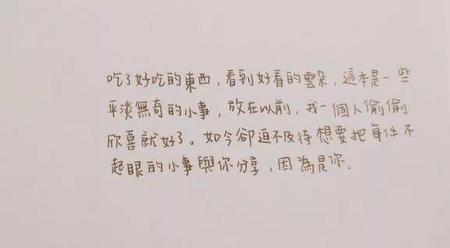 吃了好吃的東西，看到好看的雲朵，這本是一些
平淡無奇的小事，放在以前，我一個人偷偷
欣喜就好了。如今卻迫不及待想要把每件不
起眼的小事與你分享，因為是你。